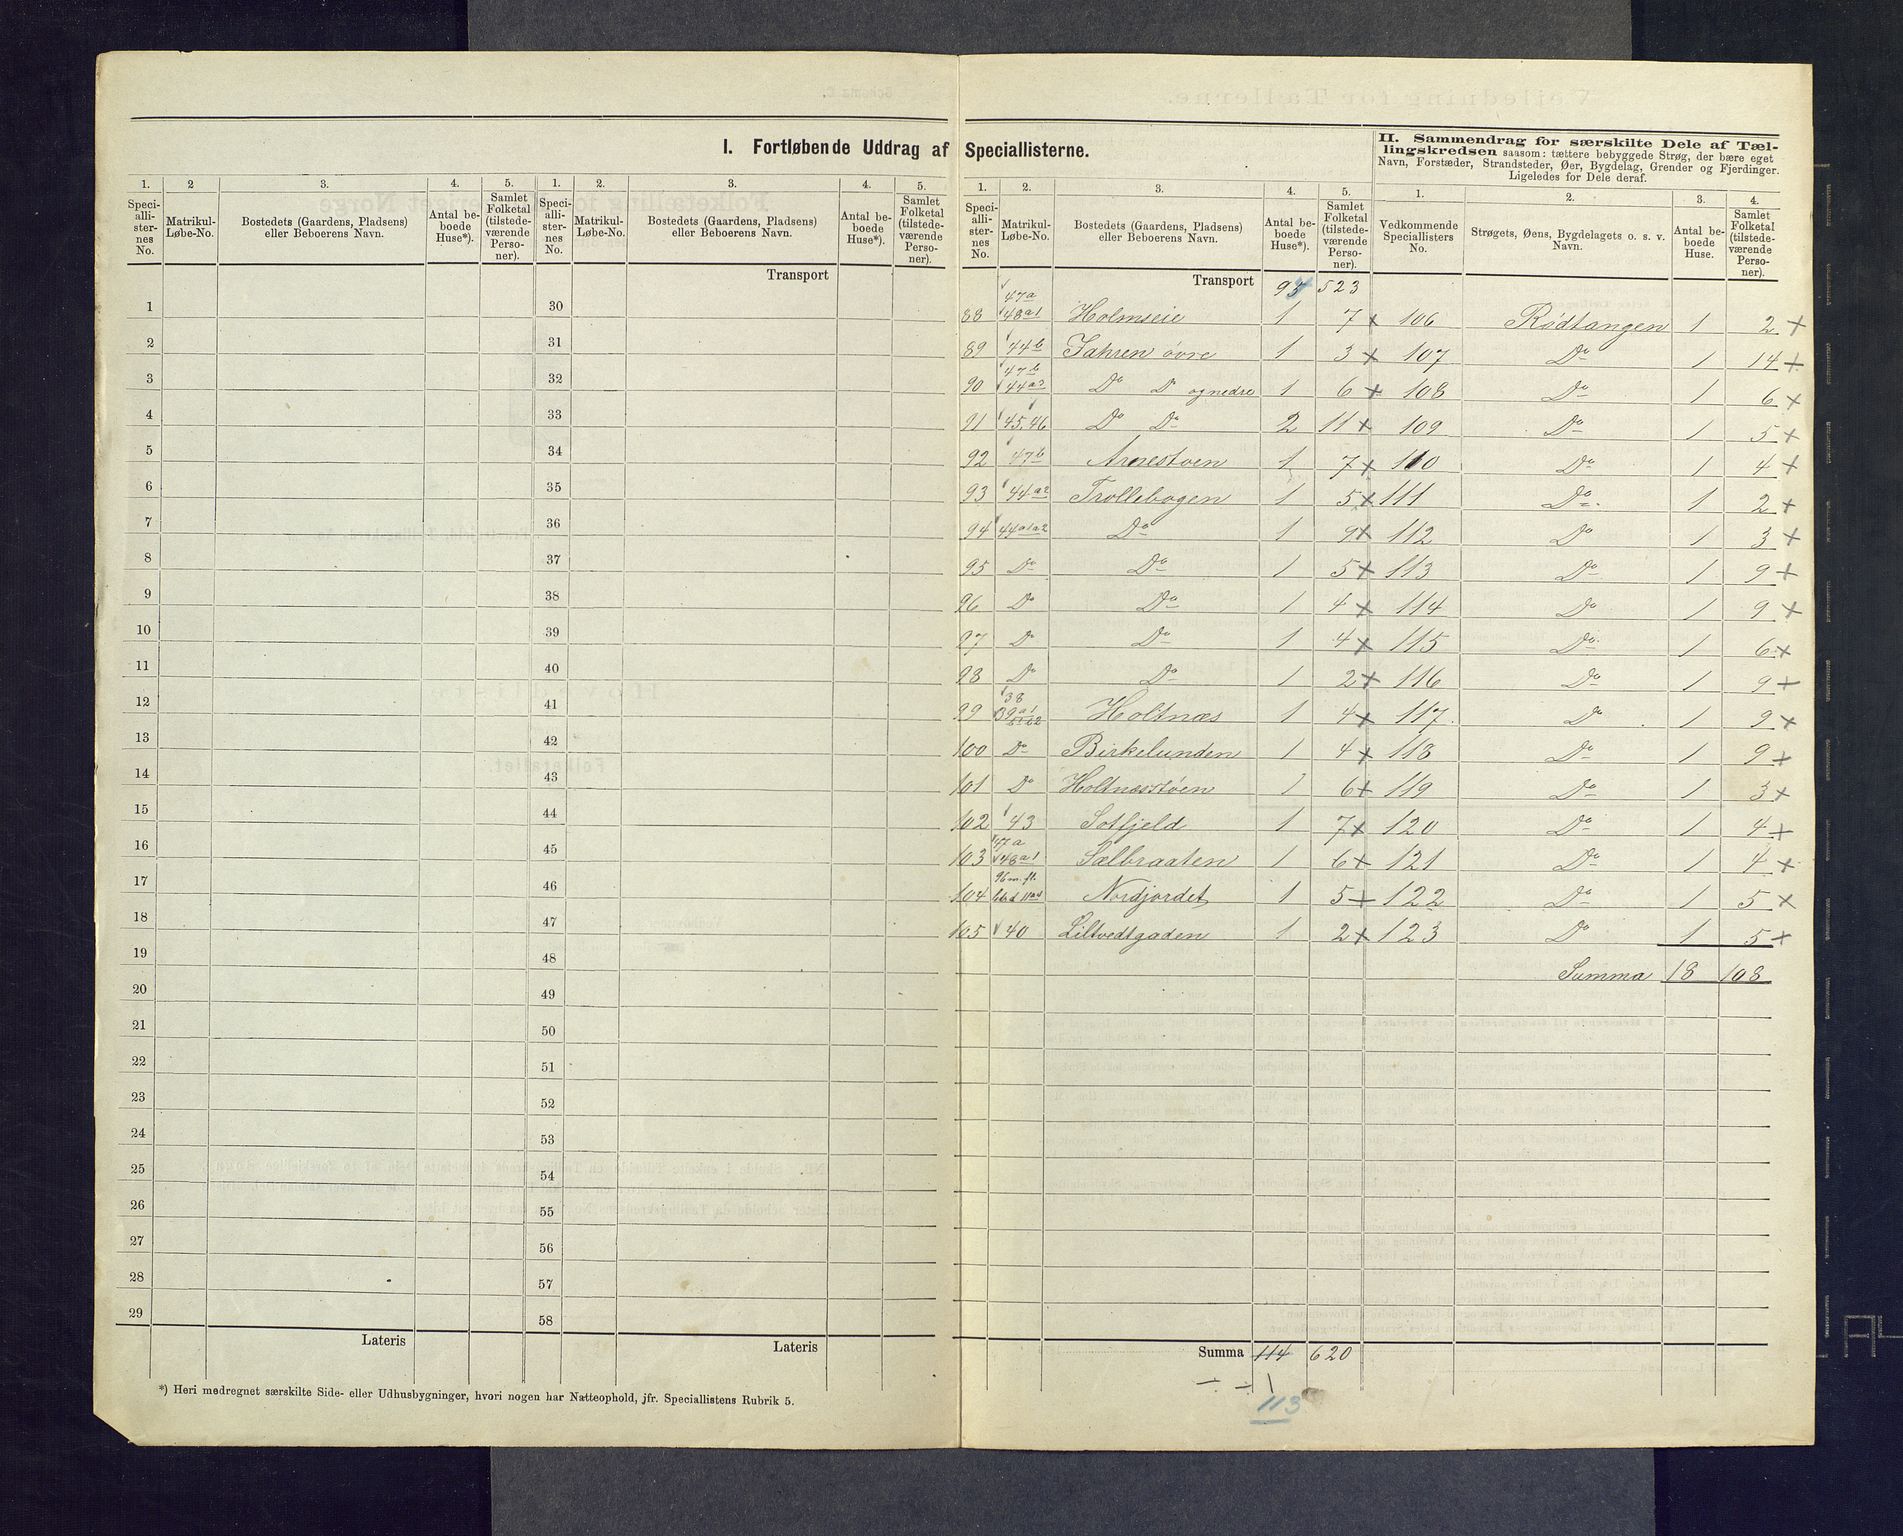 I. Fortløbende Uddrag af Speciallisterne.
II. Sammendrag for særskilte Dele af Tæl-
lingskredsen saasom: tættere bebyggede Strøg, der bære eget
Navn, Forstæder, Strandsteder, Øer, Bygdelag, Grender og Fjerdinger.
Ligeledes for Dele deraf.
1. 2 3. 4. 5. 1. 2. 3. 4. 5.
Speciallisternes No. Matrikul-Løbe-No. Bostedets (Gaardens, Pladsens) eller Beboerens Navn. Antal beboede Huse*). Samlet Folketal (tilstedeværende Personer).
Speciallisternes No. Matrikul-Løbe-No. Bostedets (Gaardens, Pladsens) eller Beboerens Navn. Antal beboede Huse*). Samlet Folketal (tilstedeværende Personer).
Transport
1 30
2 31
3 32
4 33
5 34
6 35
7 36
8 37
9 38
10 39
11 40
12 41
13 42
14 43
15 44
16 45
17 46
18 47
19 48
20 49
21 50
22 51
23 52
24 53
25 54
26 55
27 56
28 57
29 58
Lateris Lateris
*) Heri medregnet særskilte Side- eller Udhusbygninger, hvori nogen har Natteophold, jfr. Speciallistens Rubrik 5.
1. 2. 3. 4. 5. 1. 2. 3. 4.
Speciallisternes No. Matrikul-Løbe-No. Bostedets (Gaardens, Pladsens) eller Beboerens Navn. Antal beboede Huse*). Samlet Folketal (tilstedeværende Personer).
Vedkommende Speciallisters No. Strøgets, Øens, Bygdelagets o. s. v. Navn. Antal beboede Huse. Samlet Folketal (tilstedeværende Personer).
Transport 523
88 47a 48a1 Holmseie 1 7 × 106 Rødtangen 1 2 ×
89 44b Jahren øvre 1 3 × 107 Do 1 14 ×
90 47b 44a2 Do Do ognedre 1 6 × 108 Do 1 6 ×
91 45.46 Do Do 2 11 × 109 Do 1 5 ×
92 47b Arnestøen 1 7 × 110 Do 1 4 ×
93 44a2 Trollebogen 1 5 × 111 Do 1 2 ×
94 44a1a2 Do 1 9 × 112 Do 1 3 ×
95 Do Do 1 5 × 113 Do 1 9 ×
96 Do Do 1 4 × 114 Do 1 9 ×
97 Do Do 1 4 × 115 Do 1 6 ×
98 Do Do 1 2 × 116 Do 1 9 ×
99 38 39a1 Holtnæs 1 4 × 117 Do 1 9 ×
100 Do Birkelunden 1 4 × 118 Do 1 9 ×
101 Do Holtnæsstøen 1 6 × 119 Do 1 3 ×
102 43 Sotfjeld 1 7 × 120 Do 1 4 ×
103 47a 48a1 Sælbraaten 1 6 × 121 Do 1 4 ×
104 96 m. fl. Nordjordet 1 5 × 122 Do 1 5 ×
105 40 Liltvedtgaden 1 2 × 123 Do 1 5 ×
Summa 18 108
Summa 114 620
÷ 1
113